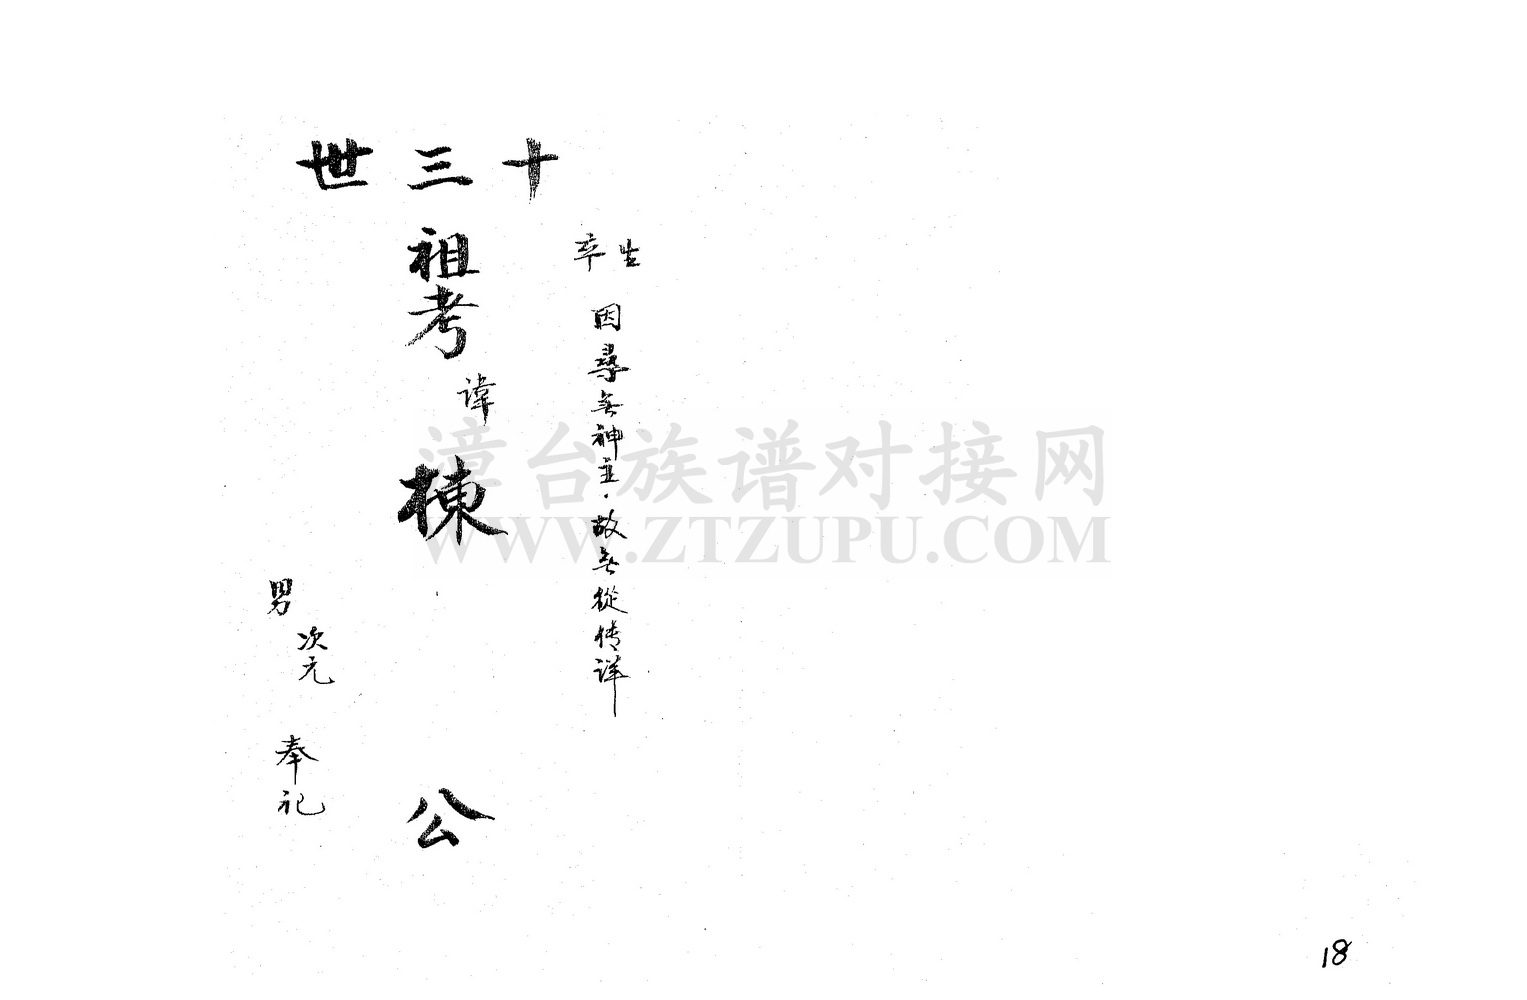 十三世
生
卒
因尋無神主．故無從传详
祖考
諱
棟
公
男
次元
奉祀
漳台族谱对接网
WWW.ZTZUPU.COM
18